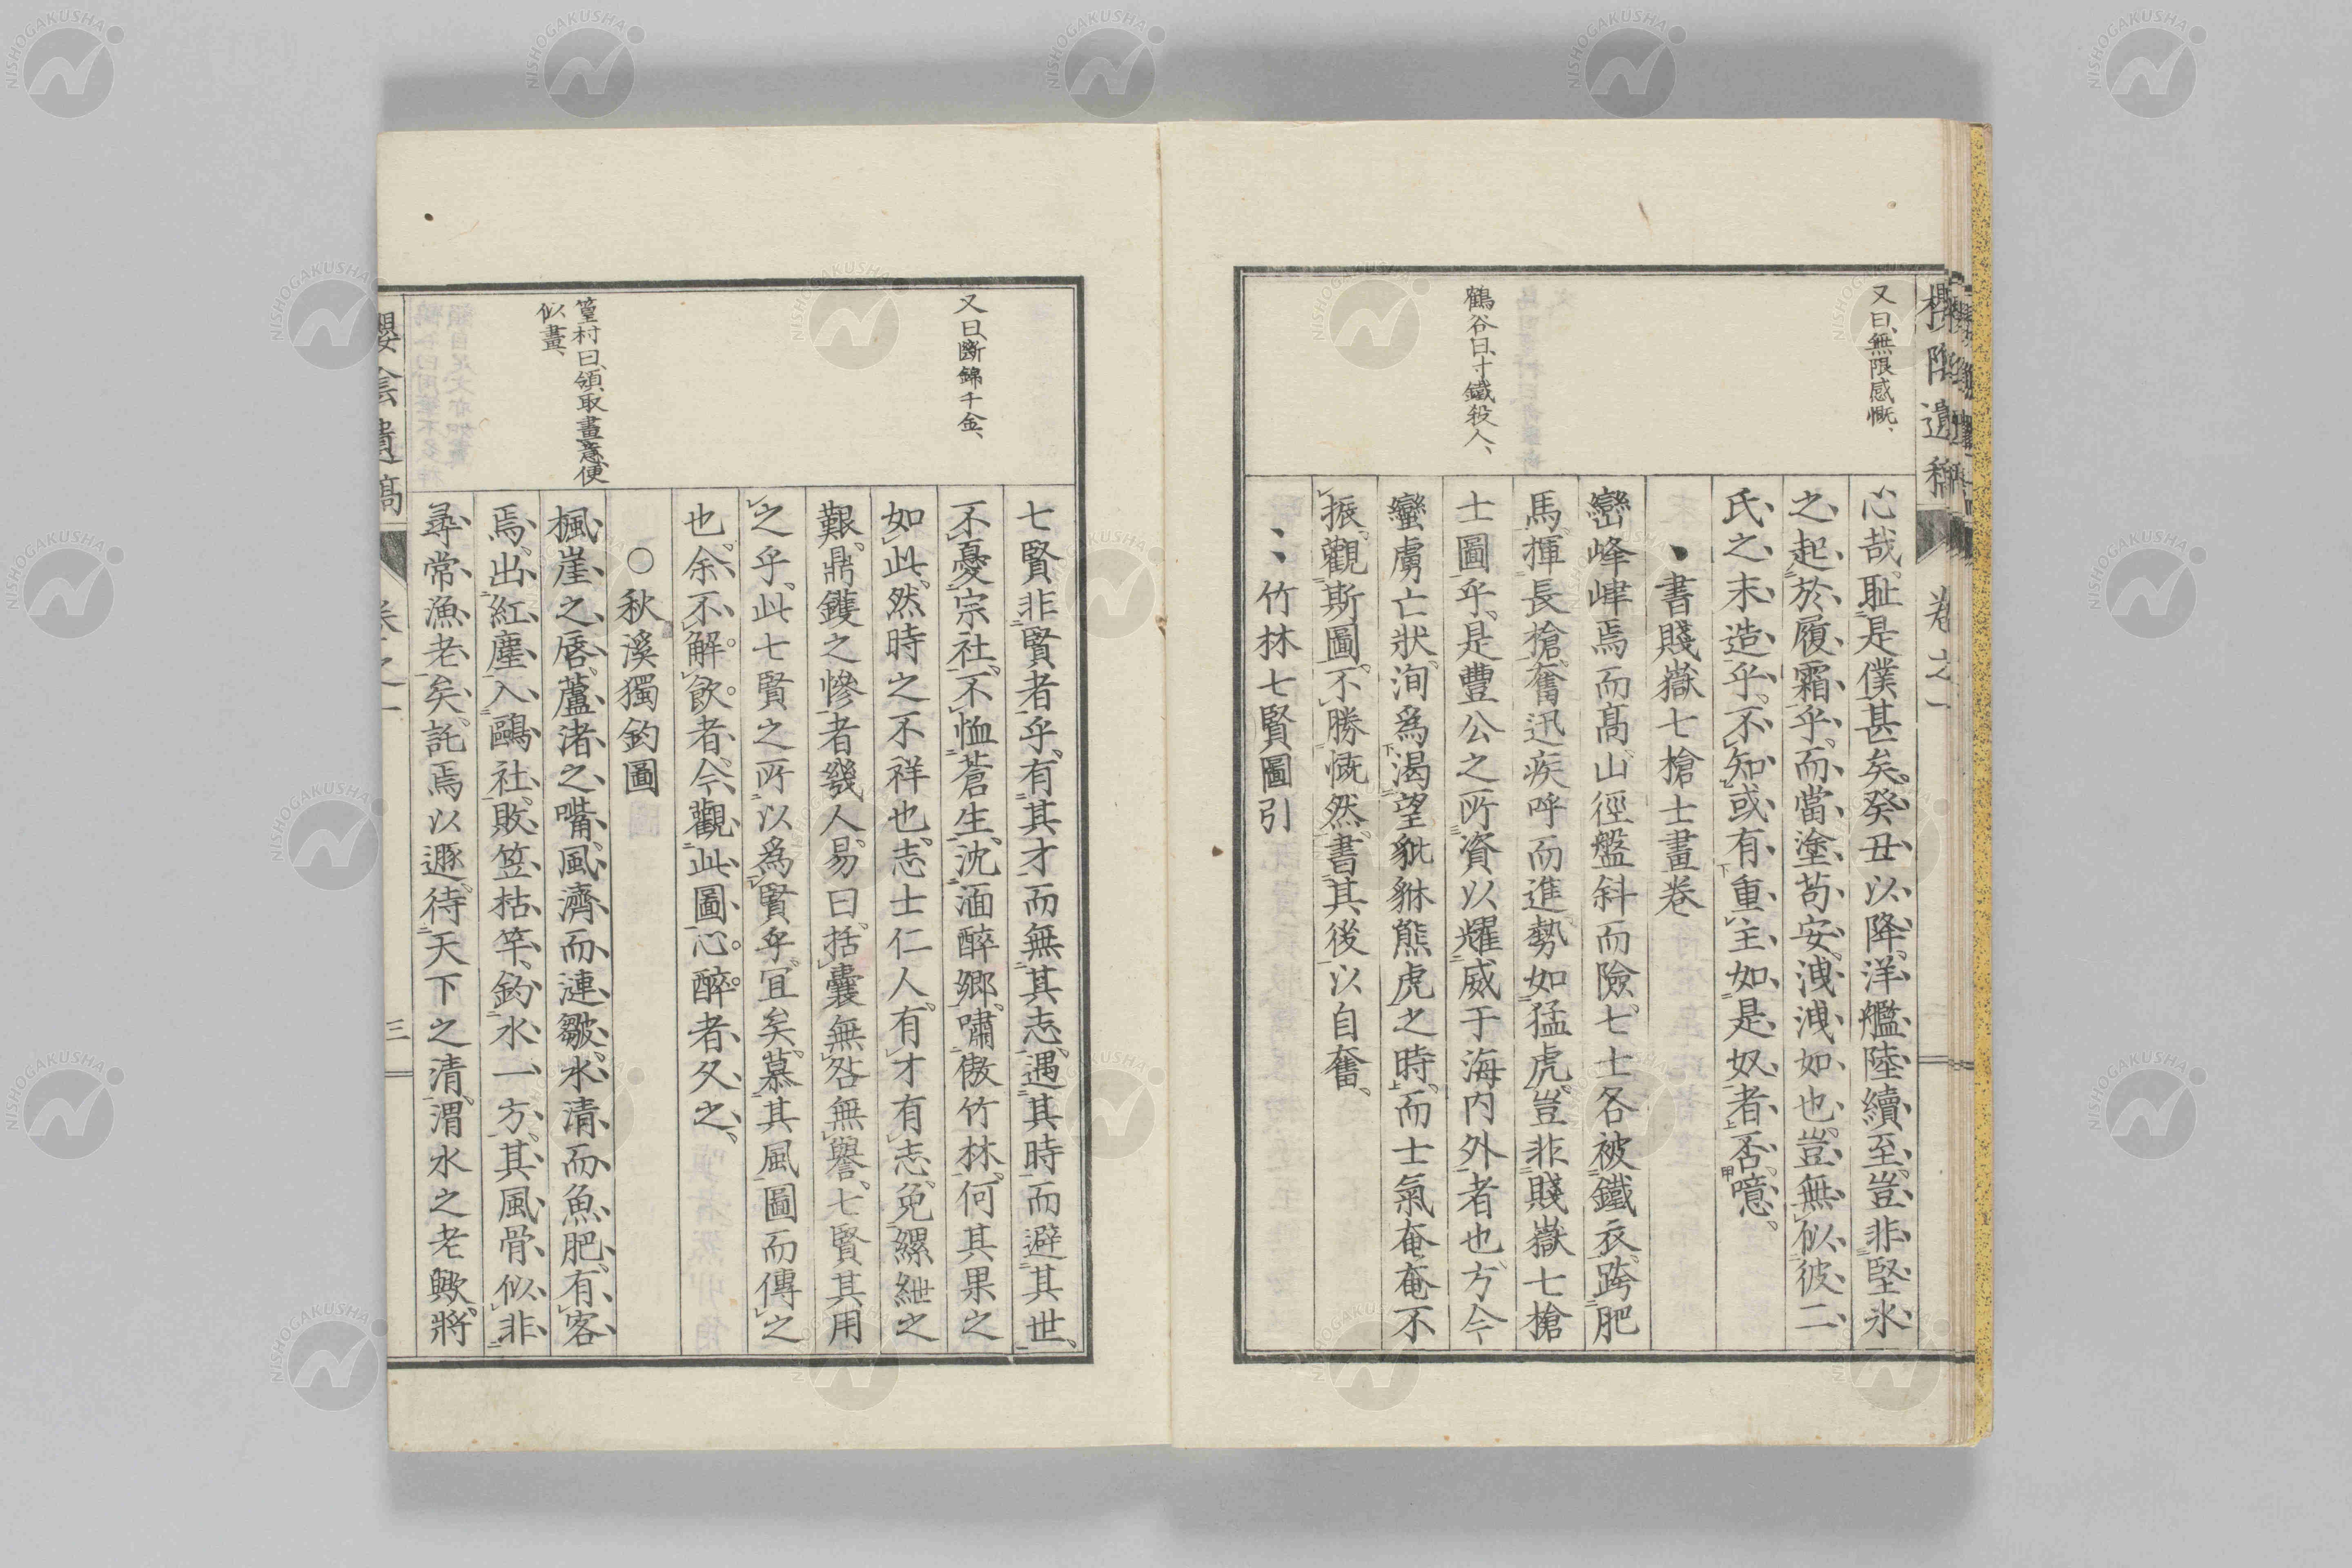 又曰、無限感慨、
心哉。恥是僕甚矣。癸丑以降。洋艦陸續至。豈非堅氷
之起於履霜乎。而當塗苟安。洩洩如也。豈無似彼二
氏之末造乎。不知或有重主如是奴者否。噫。
書賤嶽七槍士畫卷
巒峰嵂焉而高。山徑盤斜而險。七士各被鐵衣。跨肥
馬。揮長槍。奮迅疾呼而進。勢如猛虎。豈非賤嶽七槍
鶴谷曰、寸鐵殺人、
士圖乎。是豐公之所資以燿威于海内外者也。方今
蠻虜亡狀。洵爲渴望貔貅熊虎之時。而士氣奄奄不
振。觀斯圖。不勝慨然。書其後以自奮。
竹林七賢圖引
七賢非賢者乎。有其才而無其志。遇其時而避其世。
又曰、斷錦千金、
不憂宗社。不恤蒼生。沈湎醉鄉。嘯傲竹林。何其果之
如此。然時之不祥也。志士仁人。有才有志。免縲紲之
艱。鼎鑊之慘者幾人。易曰。括囊無咎無譽。七賢其用
之乎。此七賢之所以爲賢乎。宜矣。慕其風圖而傳之
也。余不解飲者。今觀此圖。心醉者久之。
○秋溪獨釣圖
篁村曰、領取畫意、便
似畫、
楓崖之唇。蘆渚之嘴。風濟而漣皺。水清而魚肥。有客
焉。出紅塵入鷗社。敗笠枯竿。釣水一方。其風骨似非
尋常漁老矣。託焉以遯。待天下之清。渭水之老歟。將
卷之一
三